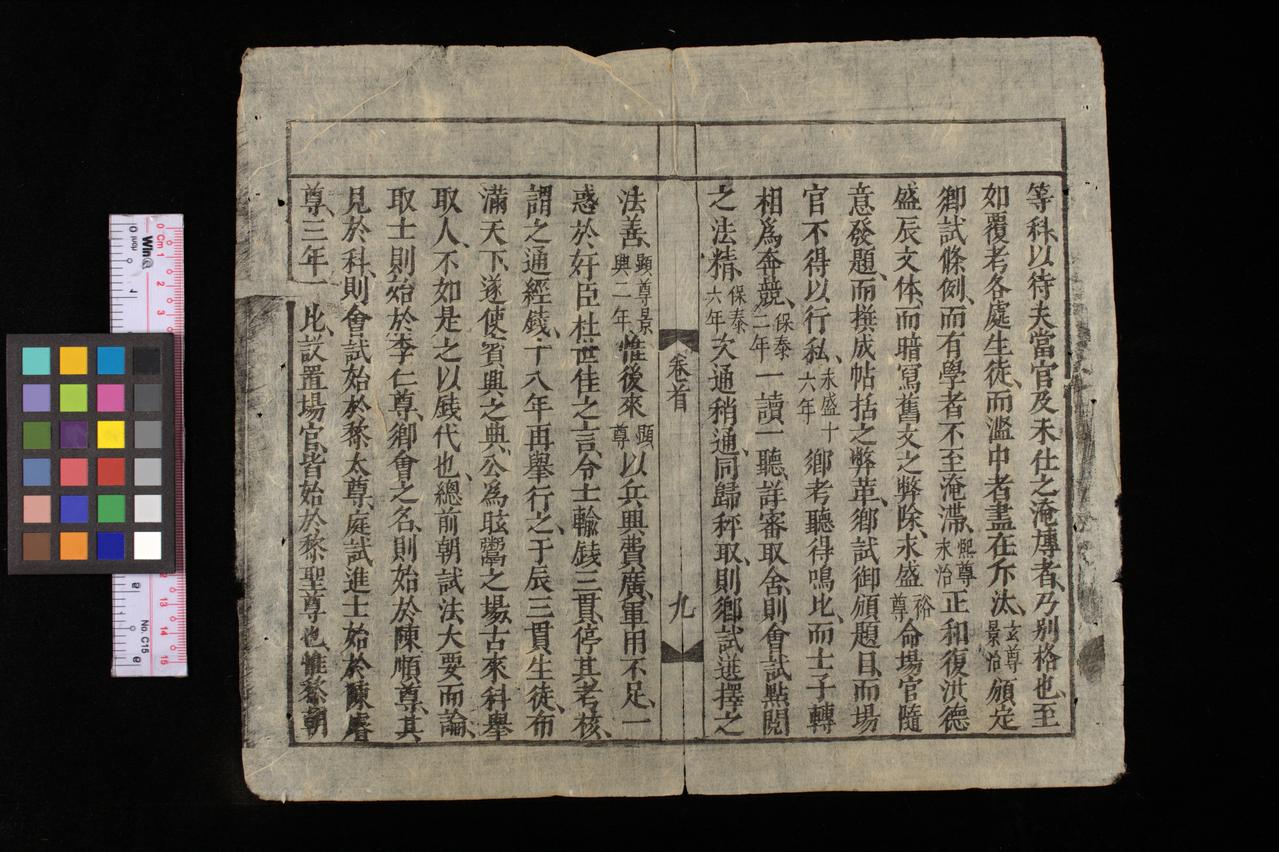 等科、以待夫當官及未仕之淹慱者、乃别格也、至
如覆考各處生徒、而濫中者盡在斥汰、玄尊景治頒定
鄉試條例、而有學者不至淹滯、熙尊末治正和復洪德
盛辰文体、而暗寫舊文之弊除、永盛裕尊命塲官隨
意發題、而撰成帖括之弊革、鄉試御頒題目、而塲
官不得以行私、永盛十六年鄉考聽得鳴比、而士子轉
相爲奔競、保泰二年一讀一聽、詳審取舍、則會試點閱
之法精、保泰六年次通稍通、同歸秤取、則鄉試選擇之
卷首
九
法善、顯尊景興二年惟後來顯尊以兵興費廣、軍用不足、一
惑於奸臣杜世佳之言、令士輸錢三貫、停其考核、
謂之通經錢、十八年再舉行之、于辰三貫生徒、布
滿天下、遂使賓興之典、公爲眩鬻之塲、古來科舉
取人、不如是之以錢代也、總前朝試法大要而論、
取士則始於李仁尊、鄉會之名、則始於陳順尊、其
見於科、則會試始於黎太尊、庭試進士始於陳睿
尊、三年一比、設置塲官、皆始於黎聖尊也、惟黎朝